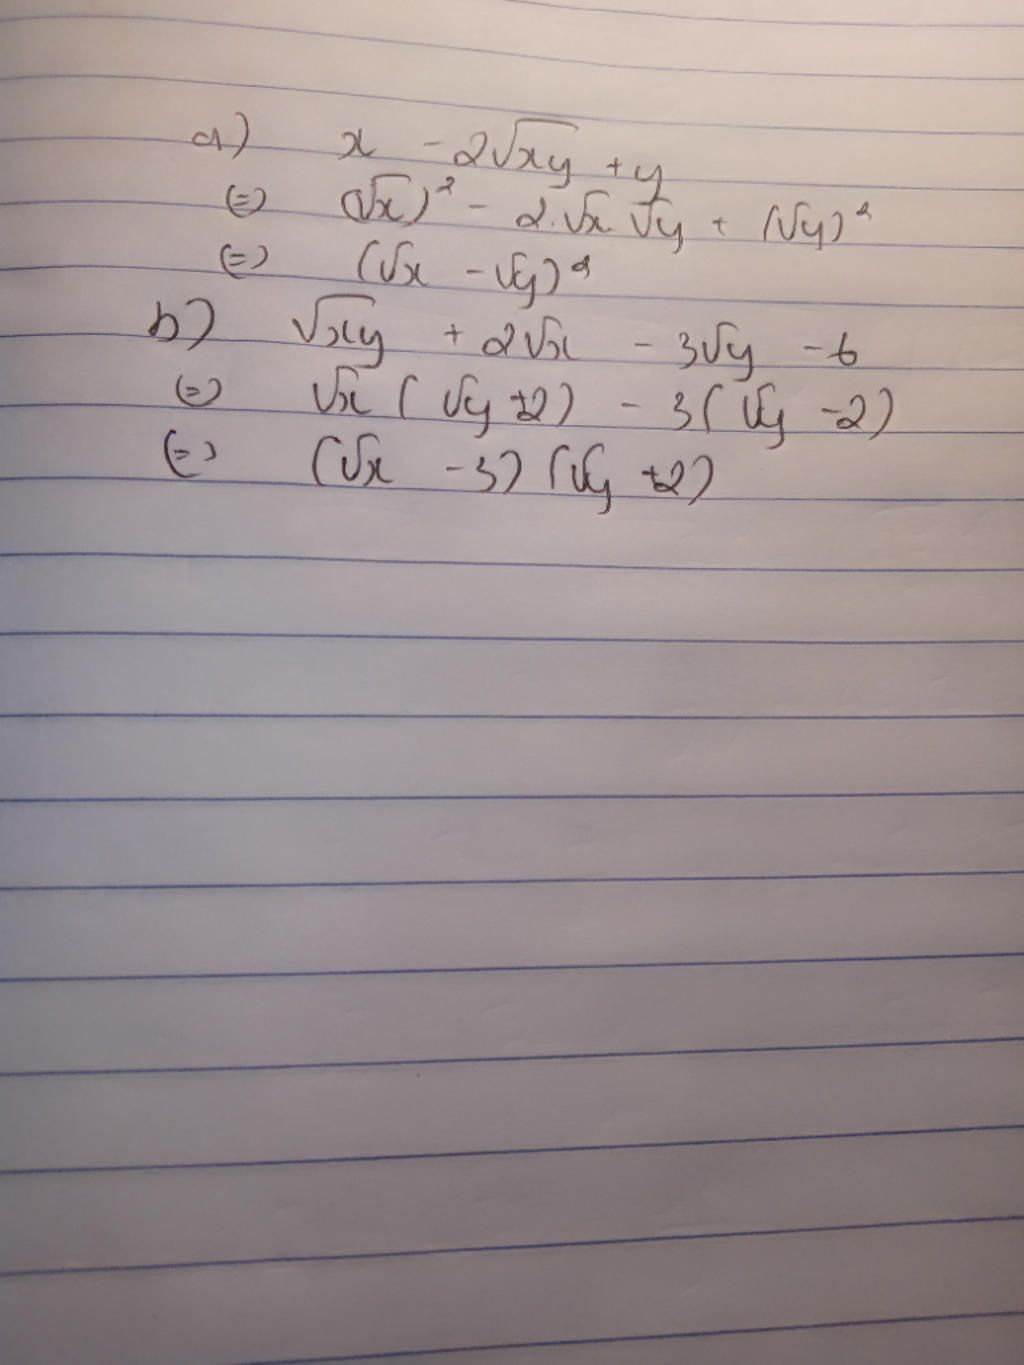 a) x - 2√xy + y
(=) (√x)² - 2.√x √y + (√y)²
(=) (√x - √y)²
b) √xy + 2√x - 3√y - 6
(=) √x ( √y +2) - 3( √y -2)
(=) (√x - 3) (√y +2)